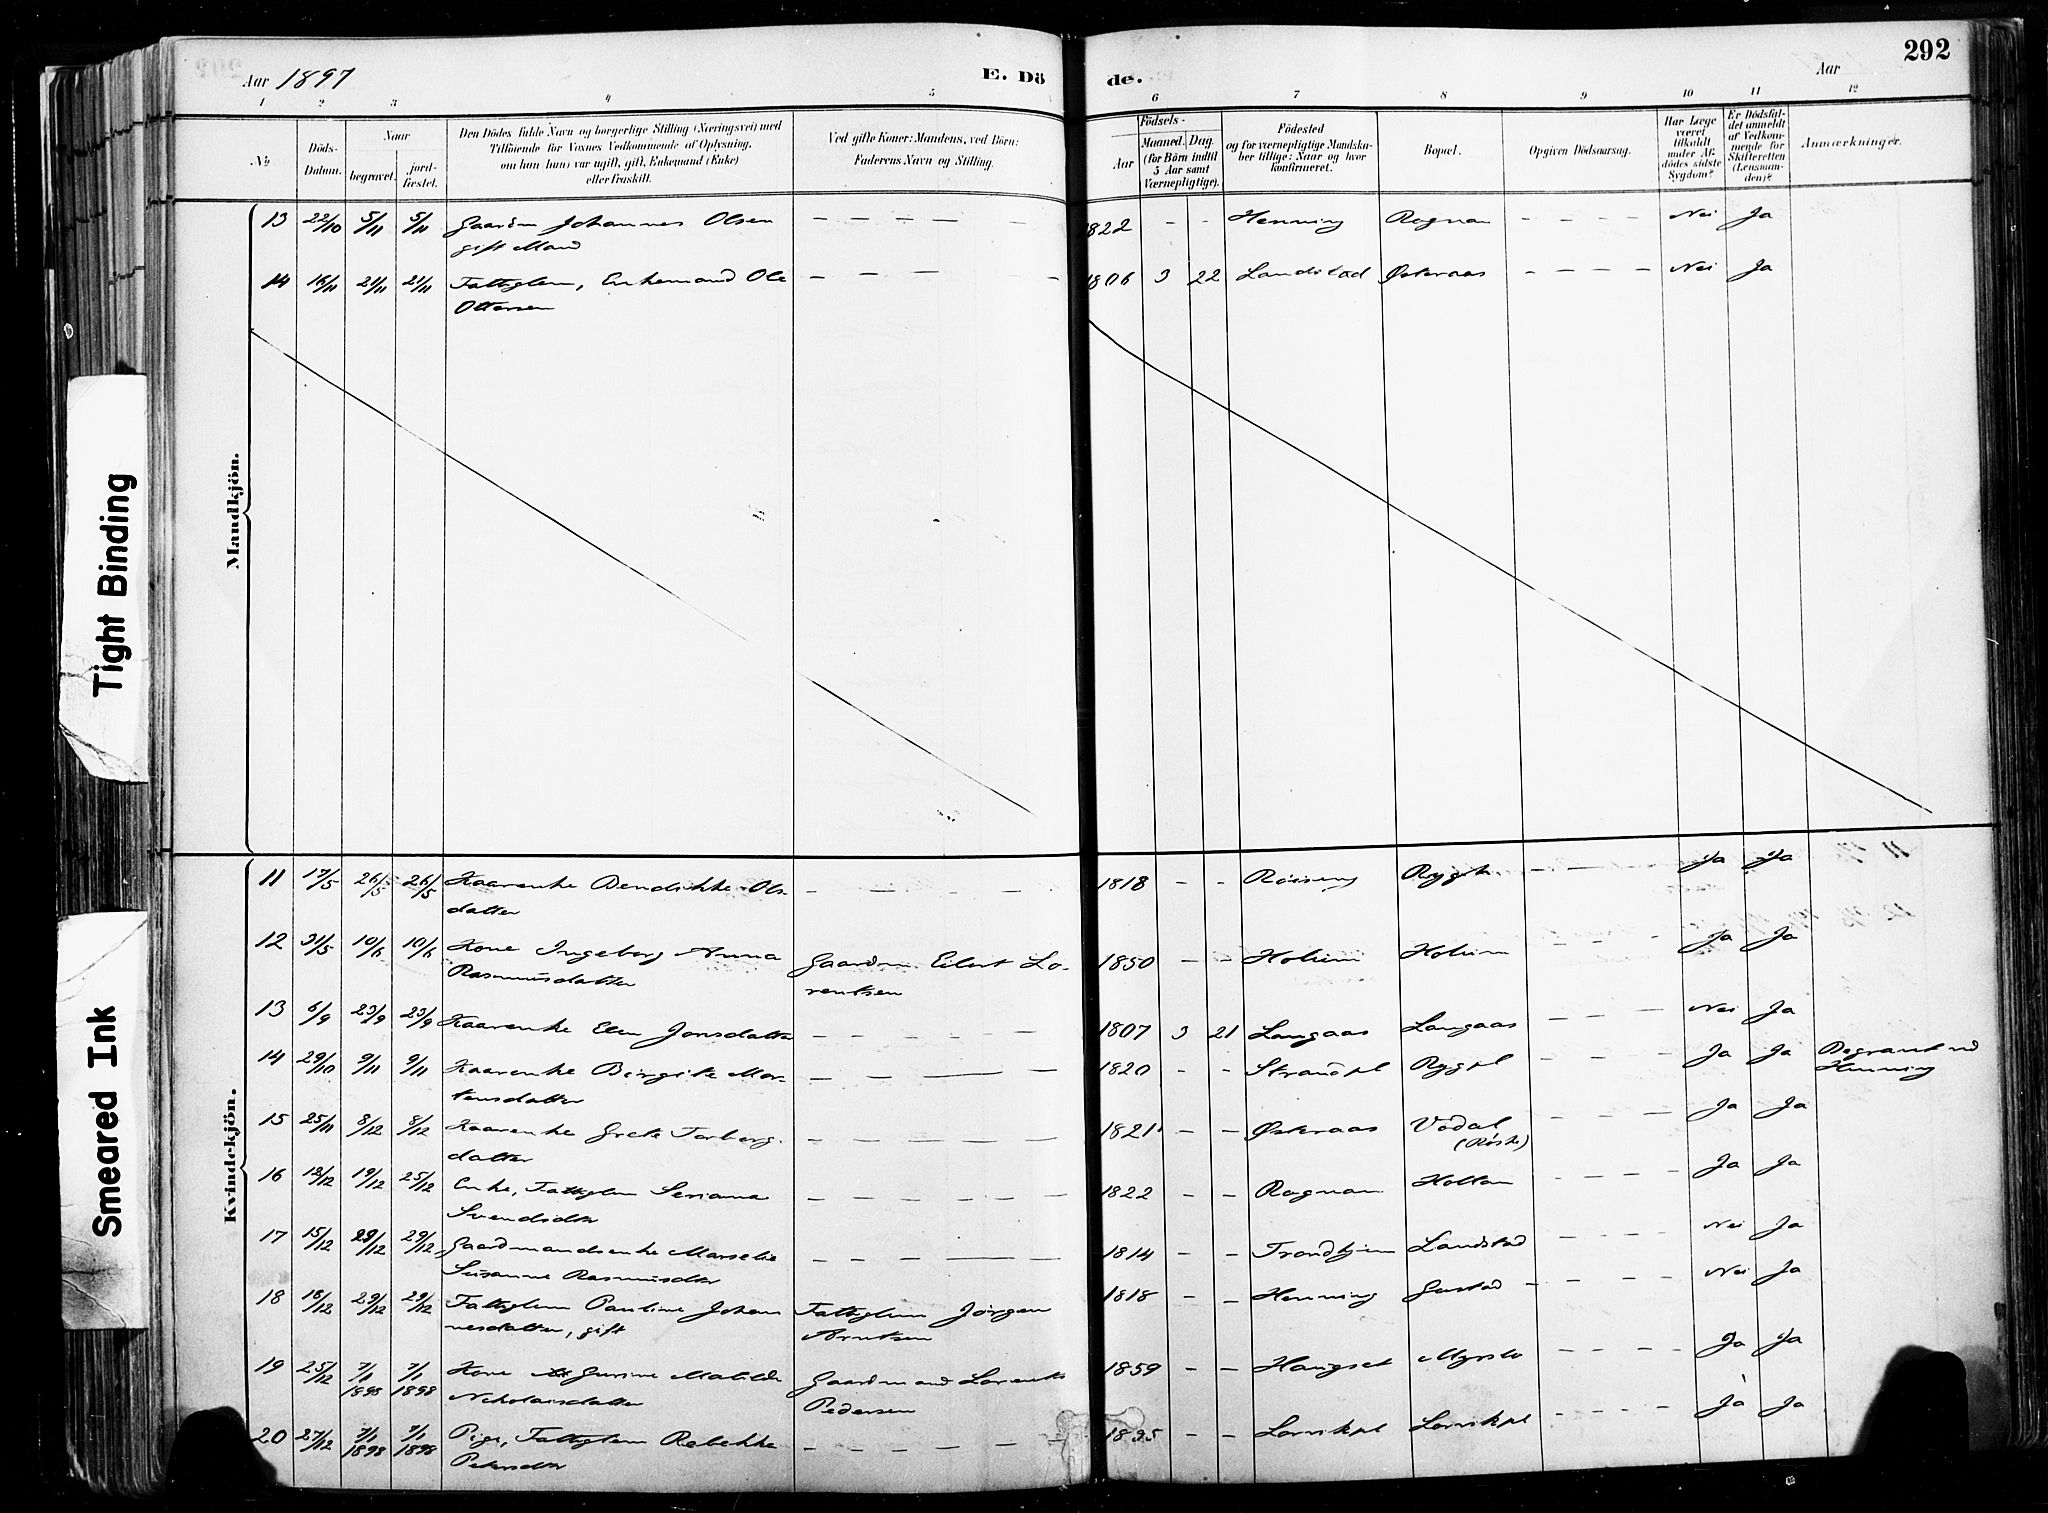 Aar 1897
E. Dö
de.
Aar
292
1 2 3 4 5 6 7 8 9 10 11 12
№
Döds-
Datum.
Naar
begravet.
jord-
fæstet.
Den Dödes fulde Navn og borgerlige Stilling (Næringsvei) med
Tilföiende for Voxnes Vedkommende af Oplysning,
om han (hun) var ugift, gift, Enkemand (Enke)
eller fraskilt.
Ved gifte Koner: Mandens, ved Börn:
Faderens Navn og Stilling.
Födsels-
Aar
Maaned. Dag.
(for Börn indtil
5 Aar samt
Værnepligtige).
Födested
og for værnepligtige Mandska-
ber tillige: Naar og hvor
konfirmeret.
Bopæl.
Opgiven Dödsaarsag.
Har Læge
været
tilkaldt
under Af-
dödes sidste
Sygdom?
Er Dödsfal-
det anmeldt
af Vedkom-
mende for
Skifteretten
(Lensman-
den)?
Anmærkninger.
Mandkjön.
13 22/10 5/11 5/11 Gaardm Johannes Olsen — — — — — 1822 - - Henning Rognan - - - - Nei Ja
gift Mand
14 16/11 21/11 21/11 Fattiglem, Enkemand Ole — — — — 1806 3 22 Landstad Østeraas - - - - Nei Ja
Ottersen
Kvindekjön.
11 17/5 26/5 26/5 Kaarenke Bendikke Ols- — — — — — 1818 - - Røising - — — — Ja Ja
datter
12 31/5 10/6 10/6 Kone Ingeborg Anna Gaardm. Eilert Lo- 1850 - - Holum Holum - - - - Ja Ja
Rasmusdatter rentsen
13 6/9 23/9 23/9 Kaarenke Elen Jonsdatter — — — — — 1807 3 21 Langaas Langaas - - - - Nei Ja
14 29/10 9/11 9/11 Kaarenke Birgite Mor- — — — — 1820 - - Strandpl Rygpl - - - - Ja Ja Begravet ved
tensdatter Henning
15 25/11 8/12 8/12 Kaarenke Grete Torberg- — — — — — 1821 - - Østeraas Vådal - - - - Ja Ja
datter (Røske)
16 12/12 19/12 25/12 Enke, Fattiglem Seriana — — — — — 1822 - - Rognan Hollan - - - - Ja Ja
Svendsdtr
17 15/12 29/12 29/12 Gaardmandsenke Marselie — — — — 1814 - - Trondhjem Landstad - - - - Nei Ja
Susanne Rasmusdtr
18 16/12 29/12 29/12 Fattiglem Pauline Johan- Fattiglem Jørgen 1818 - - Henning Gustad - - - - Nei Ja
nesdatter, gift Arntsen
19 25/12 7/1 7/1 Kone Gurine Matilde Gaardmand Lorents 1859 - - Haugset Myrslo - - - - Ja Ja
1898 1898 Nicholaisdatter Pedersen
20 27/12 7/1 7/1 Pige, Fattiglem Rebekke — — — — — 1835 - - Lorvikpl Lorvikpl - - - - Ja Ja
1898 1898 Petersdtr
Tight Binding
Smeared Ink